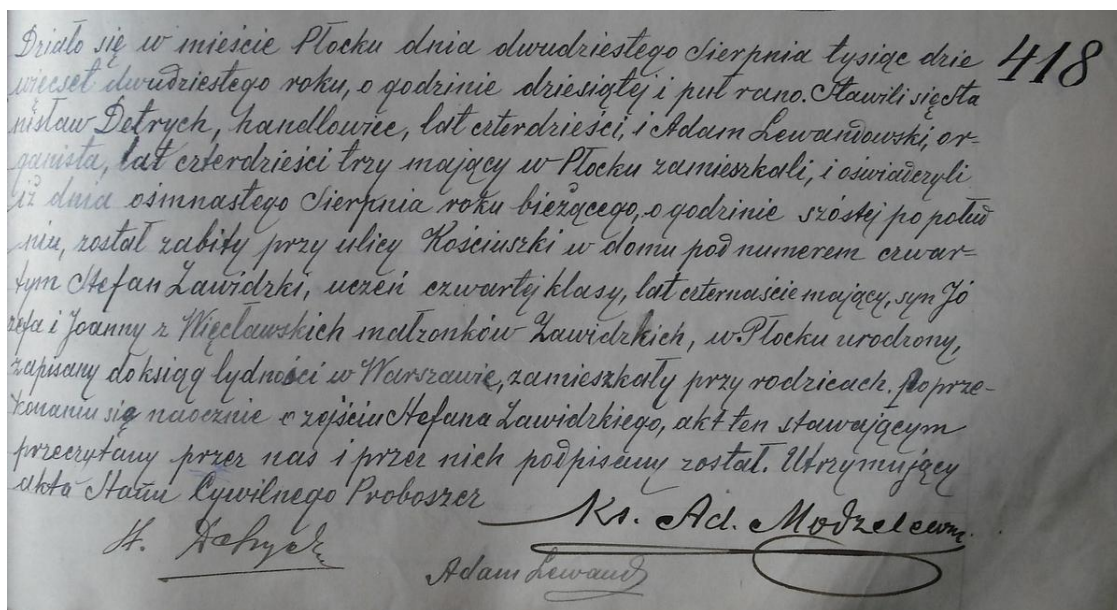 Działo się w mieście Płocku dnia dwudziestego Sierpnia tysiąc dzie
418
więcset dwudziestego roku, o godzinie dziesiątej i puł rano. Stawili się Sta
nisław Detrych, handlowiec, lat czterdzieści, i Adam Lewandowski, or=
ganista, lat czterdzieści trzy mający w Płocku zamieszkali, i oświadczyli
iż dnia ośmnastego Sierpnia roku bieżącego, o godzinie szóstej po połud
niu, został zabity przy ulicy Kościuszki w domu pod numerem czwar=
tym Stefan Zawidzki, uczeń czwartej klasy, lat czternaście mający, syn Jó
zefa i Joanny z Więcławskich małżonków Zawidzkich, w Płocku urodzony,
zapisany do ksiąg lydności w Warszawie, zamieszkały przy rodzicach. Poprze=
konaniu się naocznie o zejściu Stefana Zawidzkiego, akt ten stawającym
przeczytany przez nas i przez nich podpisany został. Utrzymujący
akta Stanu Cywilnego Proboszcz
Ks. Ad. Modzelewski
St. Detrych
Adam Lewand